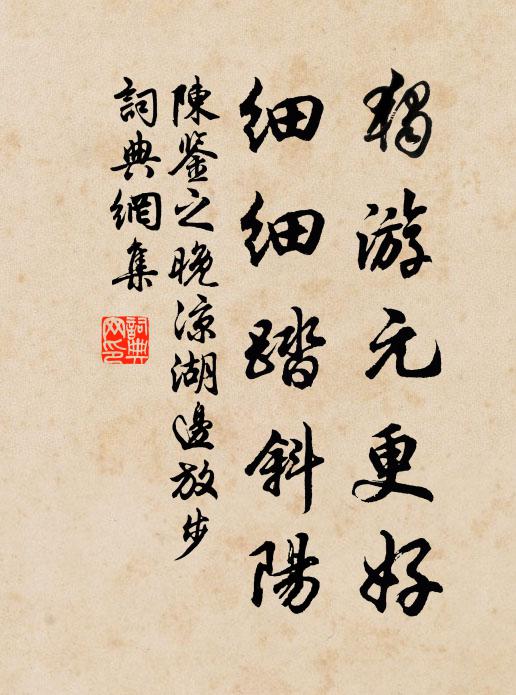 獨游元更好
細細踏斜陽
陳鉴之晚涼湖邊放步
詞典網集
詞典网印